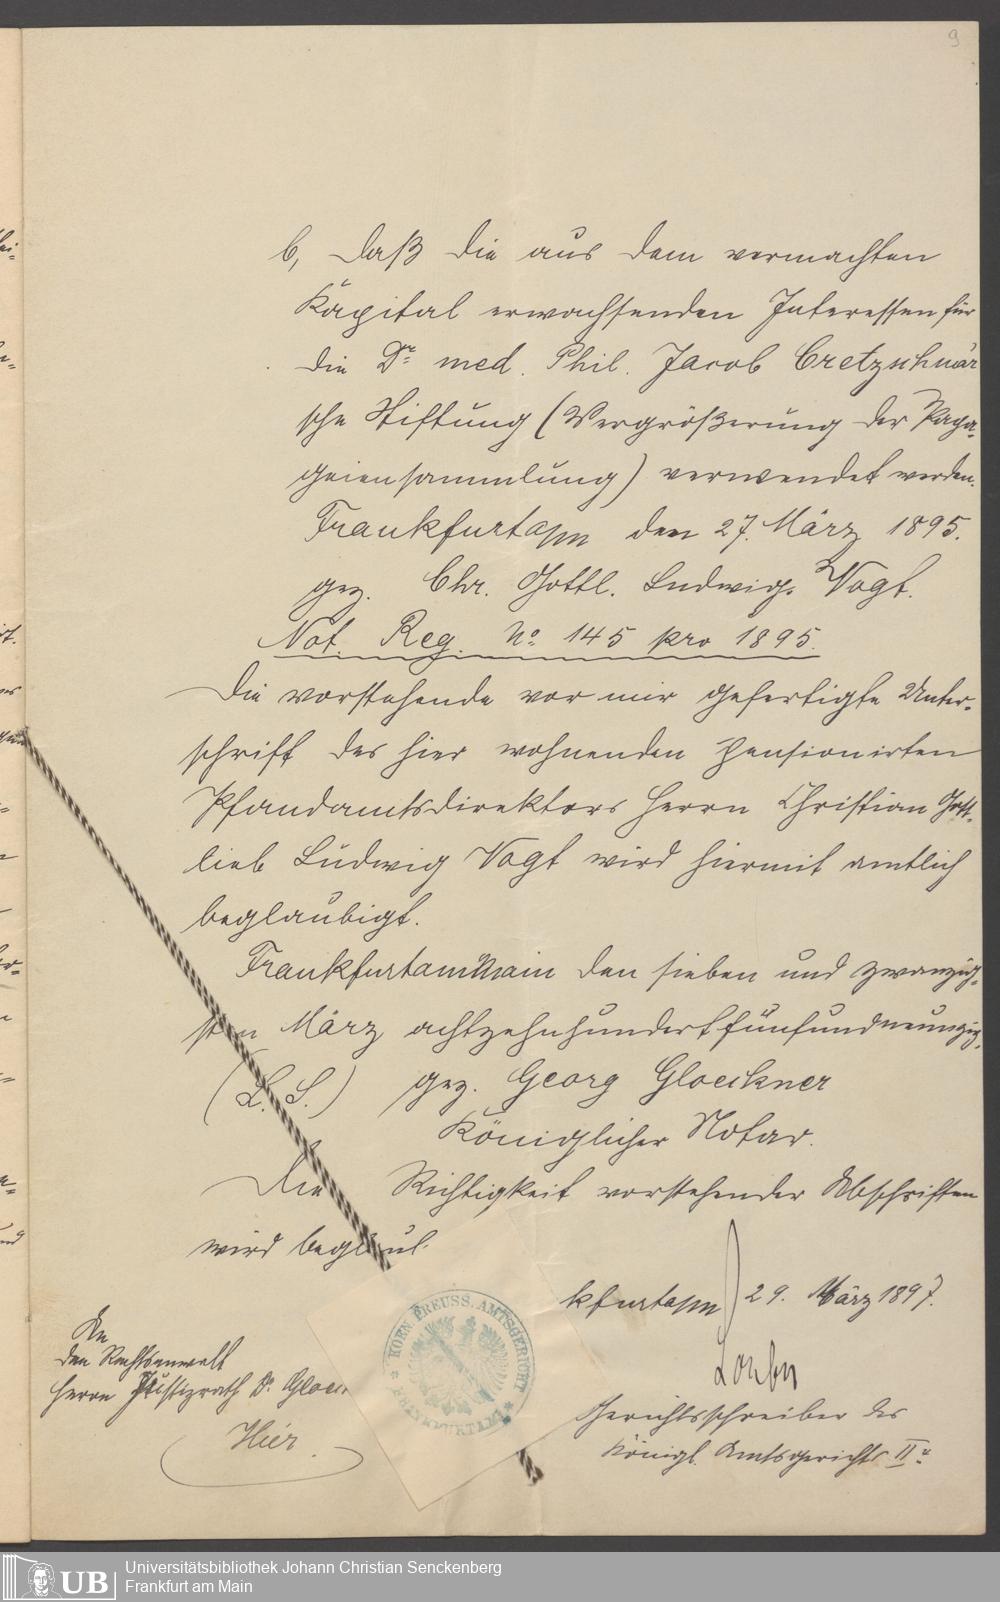 9
b, daß die aus dem vermachten
Kapital erwachsenden Interessen für
die Dr. med. Phil. Jacob Cretzschmar
sche Stiftung (Vergrößerung der Papa-
geiensammlung) verwendet werden.
Frankfurt a/m den 27. März 1895.
gez. Chr. Gottl. Ludwig Vogt.
Not. Reg. No. 145 pro 1895.
Die vorstehende vor mir gefertigte Unter-
schrift des hier wohnenden pensionirten
Pfandamtsdirektors Herrn Christian Gott-
lieb Ludwig Vogt wird hiermit amtlich
beglaubigt.
Frankfurt am Main den sieben und zwanzig-
sten März achtzehnhundertfünfundneunzig.
(L. S.) gez. Georg Gloeckner
Königlicher Notar.
Die Richtigkeit vorstehender Abschriften
wird beglaub.
kfurt a/m 29. März 1897.
An
den Rechtsanwalt
Herrn Justizrath Dr. Gloeck
Hier.
KOEN. PREUSS. AMTSGERICHT
FRANKFURT A/M
Gerichtsschreiber des
Königl. Amtsgerichts II
Universitätsbibliothek Johann Christian Senckenberg
Frankfurt am Main
UB